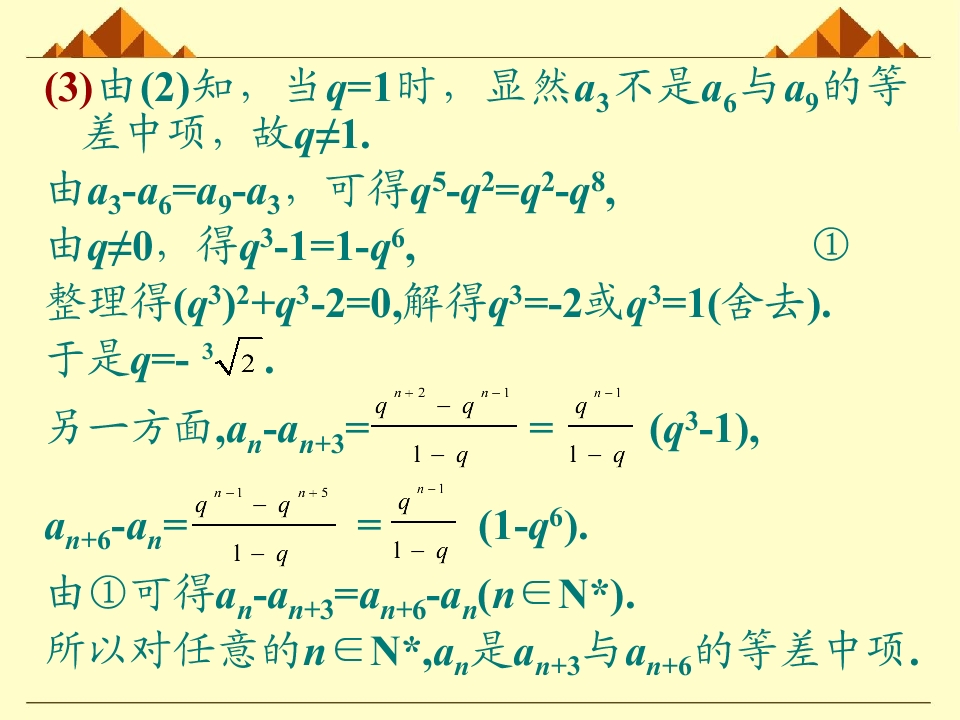 (3)由(2)知，当q=1时，显然a₃不是a₆与a₉的等
差中项，故q≠1.
由a₃-a₆=a₉-a₃，可得q⁵-q²=q²-q⁸,
由q≠0，得q³-1=1-q⁶, ①
整理得(q³)²+q³-2=0,解得q³=-2或q³=1(舍去).
于是q=- ³√2 .
另一方面,aₙ-aₙ₊₃= (qⁿ⁺² − qⁿ⁻¹)/(1 − q) = qⁿ⁻¹/(1 − q) (q³-1),
aₙ₊₆-aₙ= (qⁿ⁻¹ − qⁿ⁺⁵)/(1 − q) = qⁿ⁻¹/(1 − q) (1-q⁶).
由①可得aₙ-aₙ₊₃=aₙ₊₆-aₙ(n∈N*).
所以对任意的n∈N*,aₙ是aₙ₊₃与aₙ₊₆的等差中项.